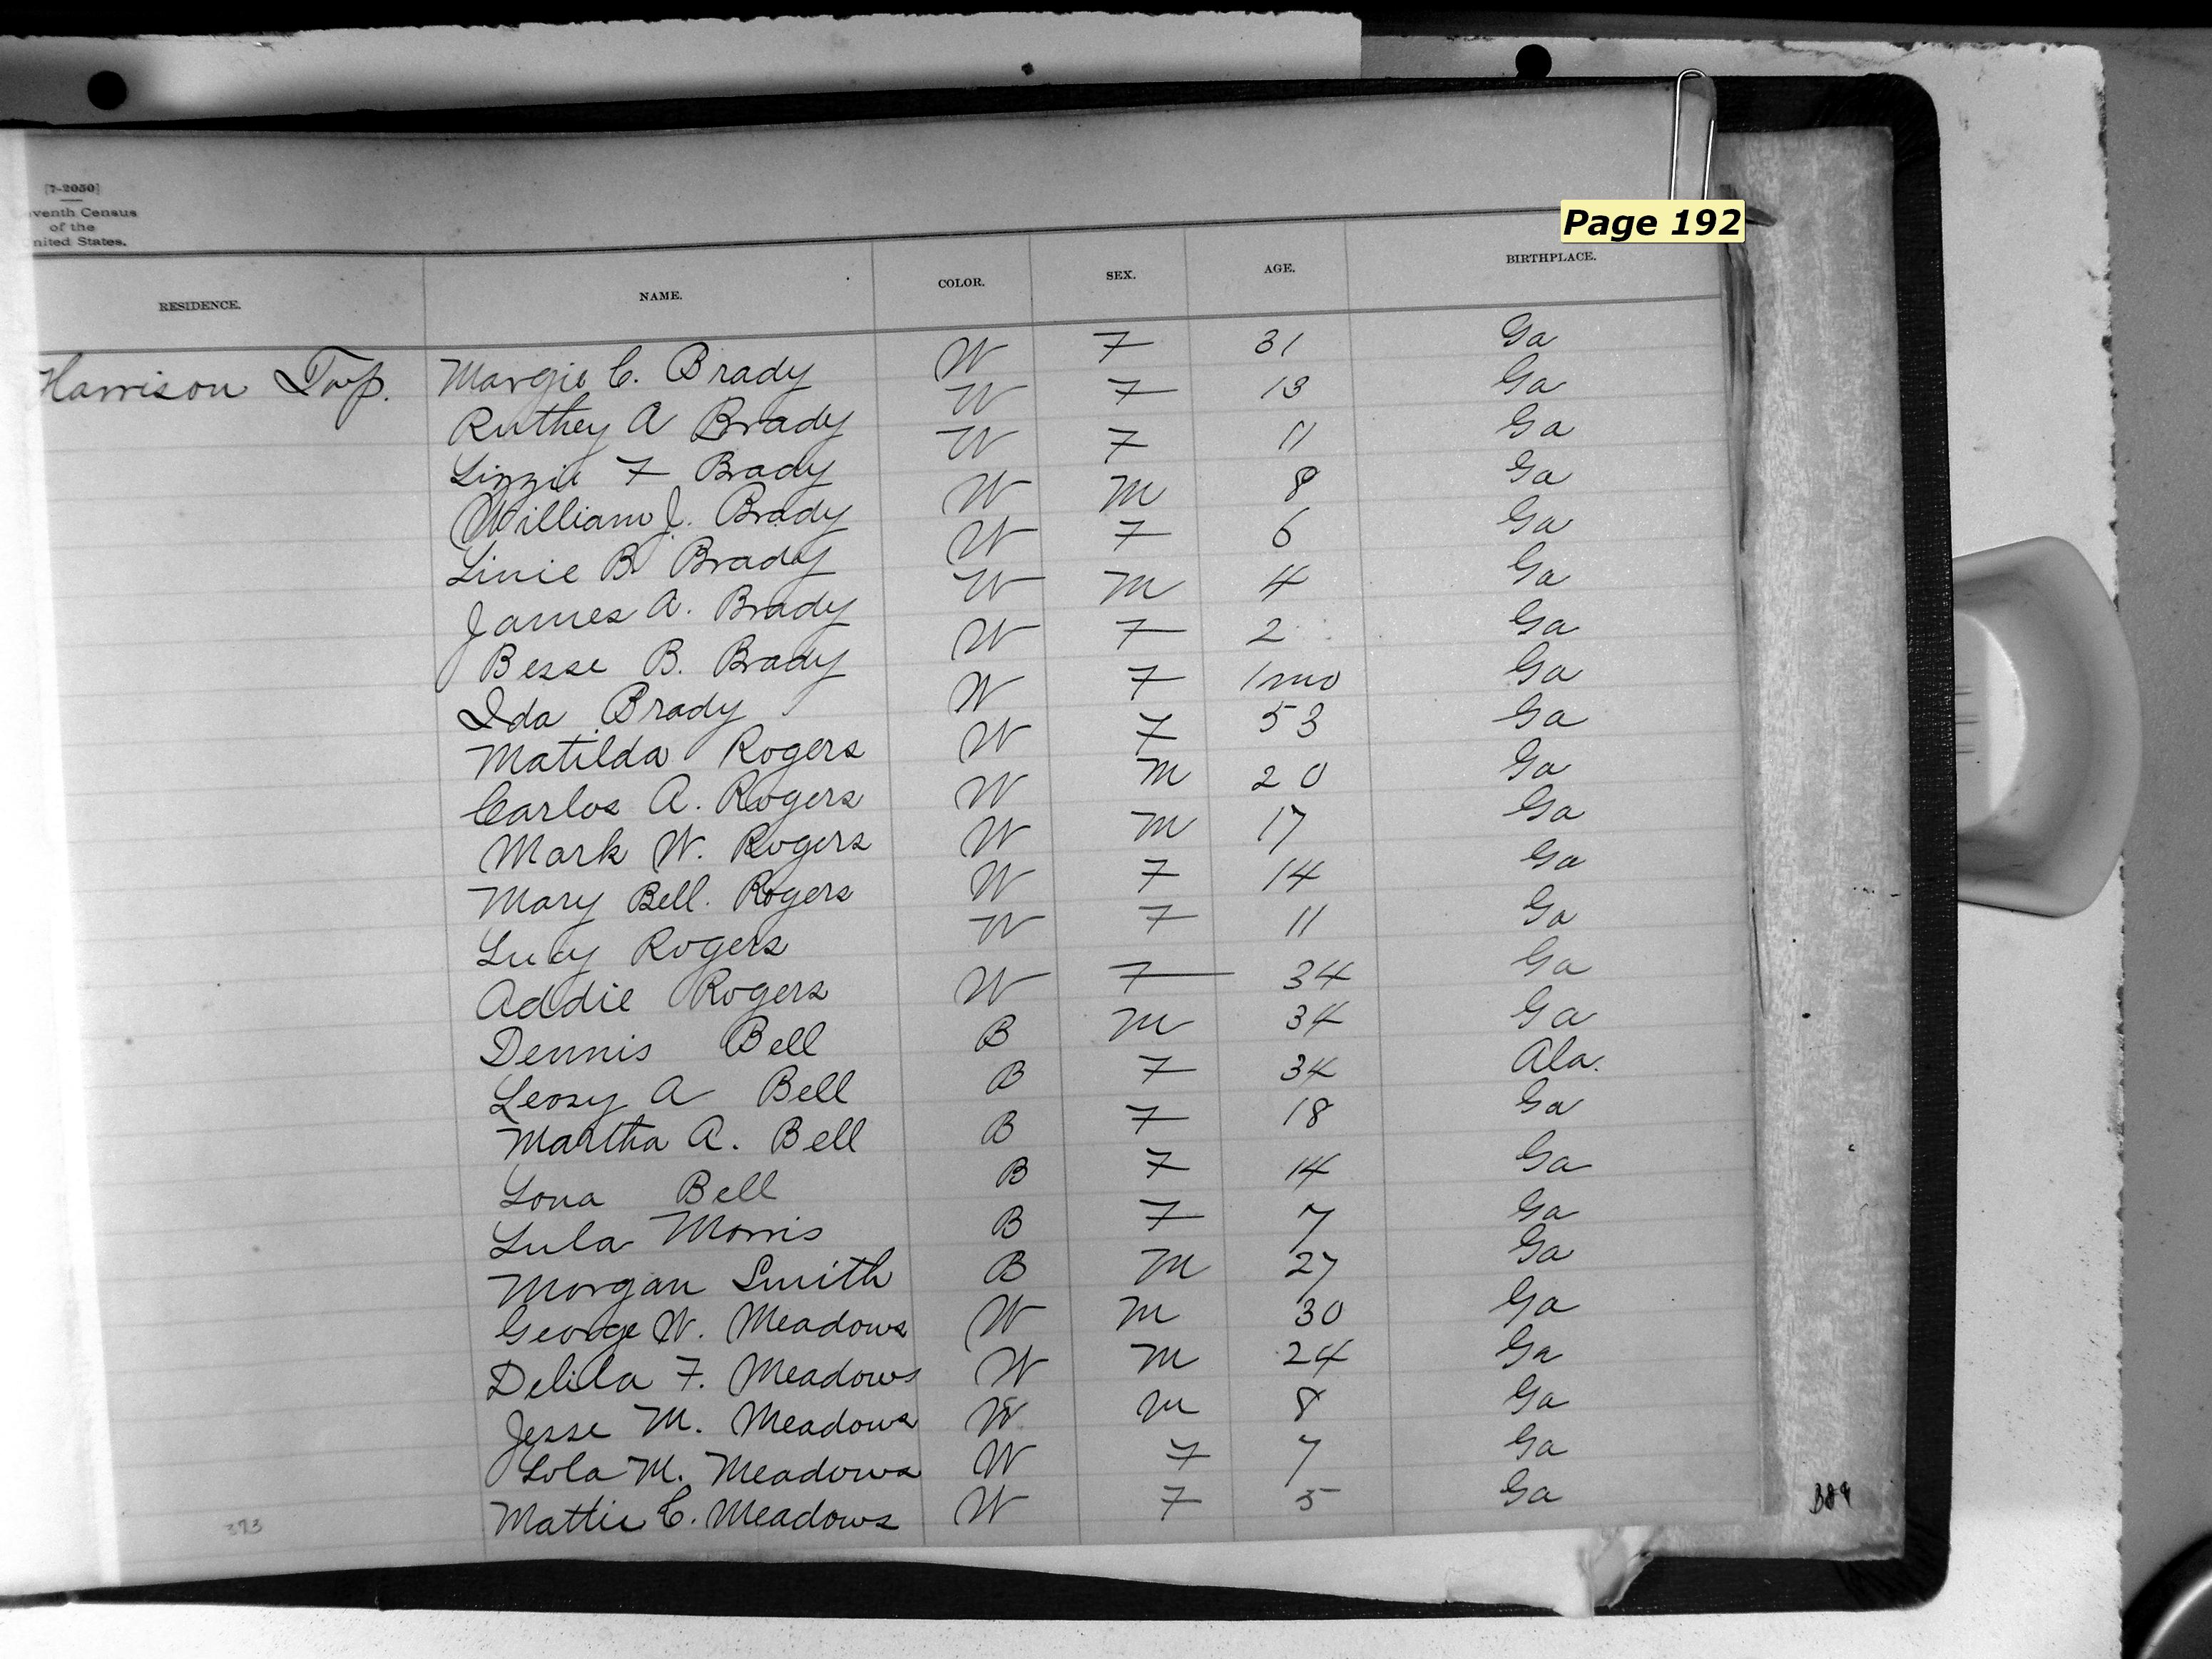 [7-2050]
venth Census
of the
nited States.
Page 192
RESIDENCE. NAME. COLOR. SEX. AGE. BIRTHPLACE.
Harrison Twp. Margie C. Brady W F 31 Ga
Ruthey A Brady W F 13 Ga
Lizzie F Brady W F 11 Ga
William J. Brady W M 8 Ga
Linie B. Brady W F 6 Ga
James A. Brady W M 4 Ga
Besse B. Brady W F 2 Ga
Ida Brady W F 1mo Ga
Matilda Rogers W F 53 Ga
Carlos A. Rogers W M 20 Ga
Mark W. Rogers W M 17 Ga
Mary Bell. Rogers W F 14 Ga
Lucy Rogers W F 11 Ga
Addie Rogers W F 34 Ga
Dennis Bell B M 34 Ga
A Bell B F 34 Ala.
Martha A. Bell B F 18 Ga
Lona Bell B F 14 Ga
Lula Morris B F 7 Ga
Morgan Smith B M 27 Ga
George W. Meadows W M 30 Ga
Delila F. Meadows W M 24 Ga
Jesse M. Meadows W M 8 Ga
Lola M. Meadows W F 7 Ga
Mattie C. Meadows W F 5 Ga
373